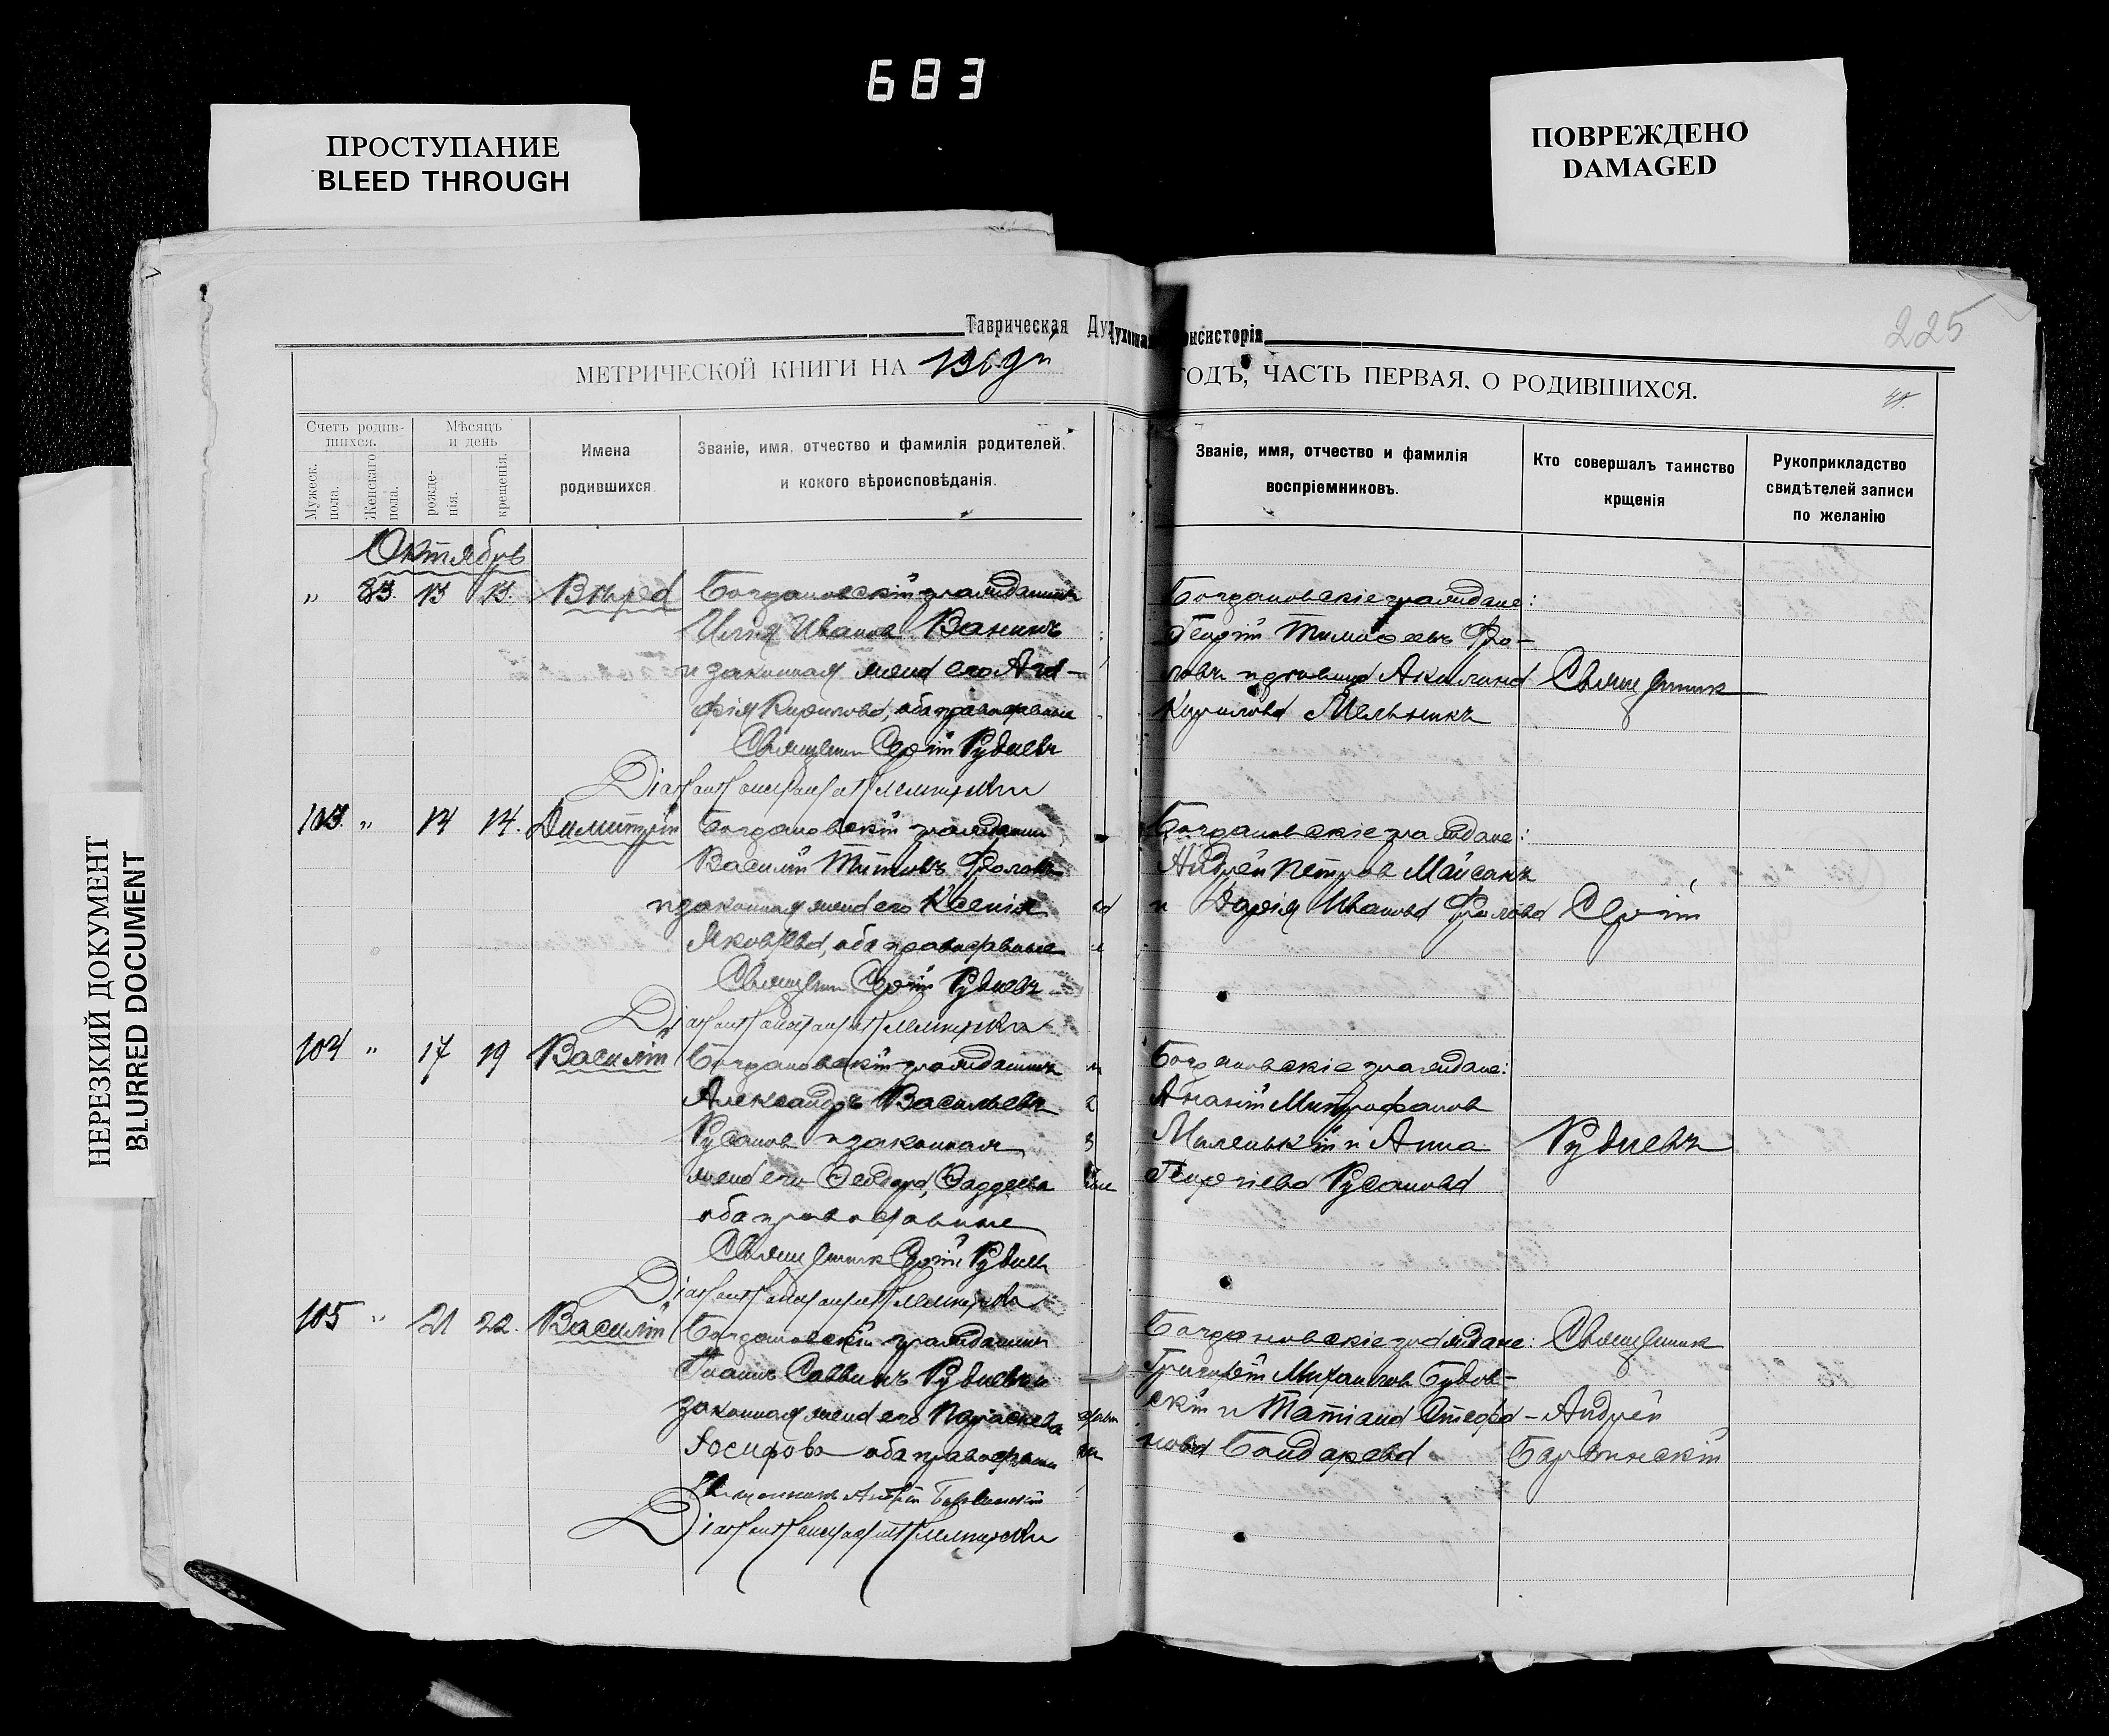 683
ПРОСТУПАНИЕ
BLEED THROUGH
ПОВРЕЖДЕНО
DAMAGED
НЕРЕЗКИЙ ДОКУМЕНТ
BLURRED DOCUMENT
225
Таврическая Духовная Консисторія
МЕТРИЧЕСКОЙ КНИГИ НА
ГОДЪ, ЧАСТЬ ПЕРВАЯ, О РОДИВШИХСЯ.
Счетъ родив-
шихся.
Мужеск.
пола.
Женскаго
пола.
Мѣсяцъ
и день
рожде-
нія.
крещенія.
Имена
родившихся
Званіе, имя, отчество и фамилія родителей,
и кокого вѣроисповѣданія.
Званіе, имя, отчество и фамилія
воспріемниковъ.
Кто совершалъ таинство
крщенія
Рукоприкладство
свидѣтелей записи
по желанію
Октябрь
" 83. 13 13. Богдановскій гражданинъ
Илія Иванов Ванинъ
и законная жена его Ага-
фія Кирилова, оба православные
Священник Сергій Рудневъ
Богдановскіе граждане:
Георгій Тимофеевъ Фро-
ловъ и Акилина
Кирилова Мельникъ
Священник
103. " 14 14. Димитрій Богдановскій гражданин
Василій Титовъ Фроловъ
и законная жена его Ксенія
Яковлева, оба православные
Священник Сергій Рудневъ
Богдановскіе граждане:
Андрей Петров Майсакъ
и Дарія Иванова Фролова
Сергій
104 " 17 19 Василій Богдановскій гражданинъ
Александръ Васильевъ
Русанов и законная
жена его Феодора Фаддеева
оба православные
Священник Сергій Рудневъ
Богдановскіе граждане:
Ананій Митрофанов
Маленькій и Анна
Георгіева Русанова
Рудневъ
105 " 21 22. Василій Богдановскій гражданинъ
Іоаннъ Саввинъ Рудневъ и
законная жена его Параскева
Іосифова оба православны
Священникъ Андрей Барвинскій
Богдановскіе граждане:
Григорій Михаилов Будов-
скій и Татіана Стефа-
нова Бондарева
Священник
Андрей
Барвинскій